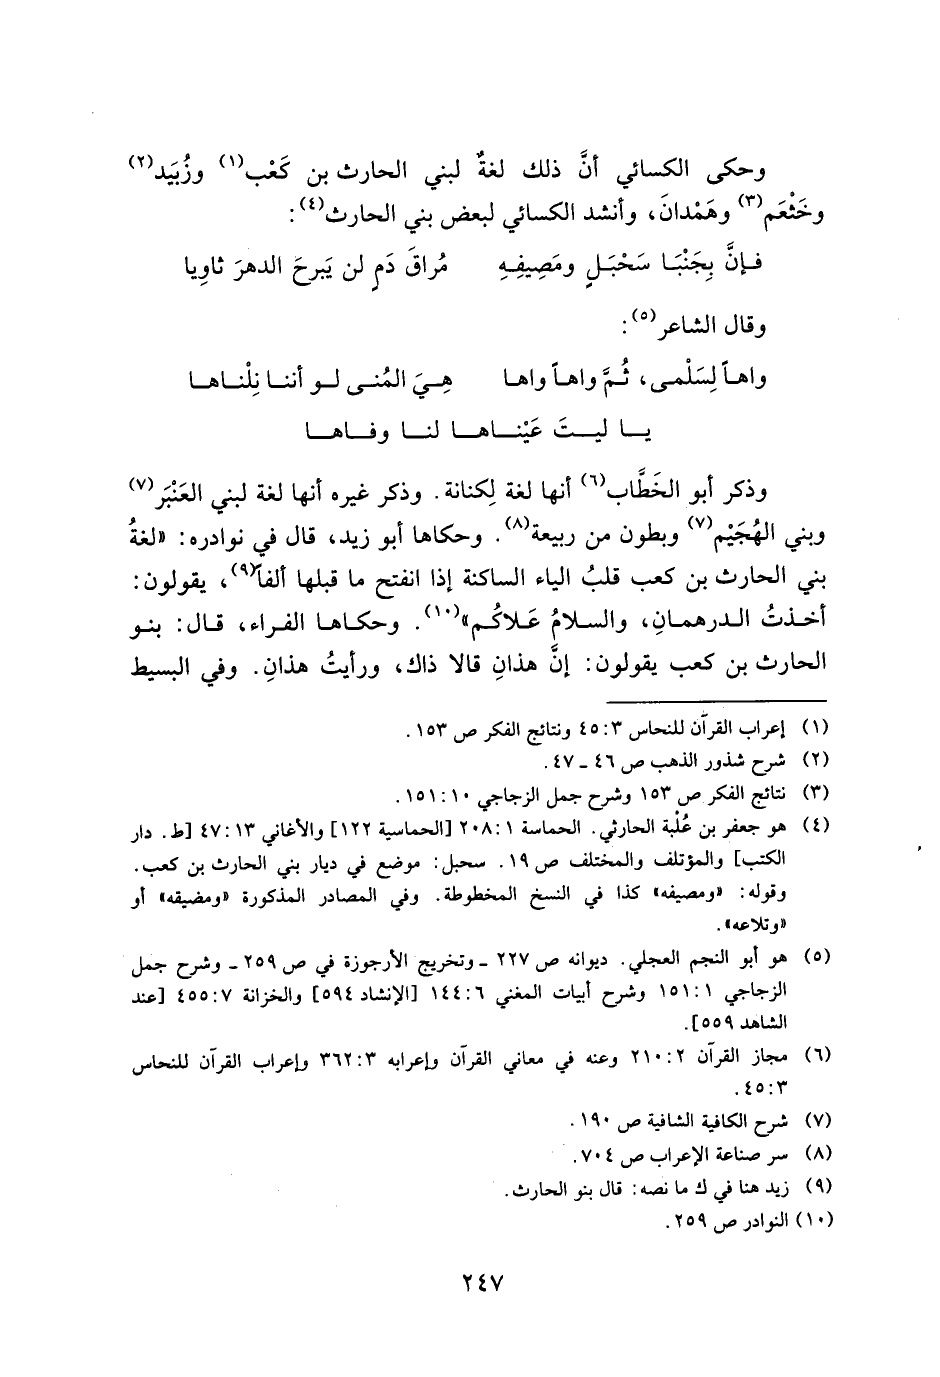 وحكى الكسائي أنَّ ذلك لغةٌ لبني الحارث بن كَعْب(١) وزُبَيد(٢)
وخَثْعَم(٣) وهَمْدانَ، وأنشد الكسائي لبعض بني الحارث(٤):
فـإنَّ بِجَنْبَـا سَحْبَـلٍ ومَصِيفِـهِ مُراقَ دَمٍ لن يَبرحَ الدهرَ ثاوِيا
وقال الشاعر(٥):
واهـاً لِسَلْمى، ثُـمَّ واهـاً واهـا هـيَ المُنـى لـو أننـا نِلْنـاهـا
يـا ليـتَ عَيْنـاهـا لنـا وفـاهـا
وذكر أبو الخَطَّاب(٦) أنها لغة لِكنانة. وذكر غيره أنها لغة لبني العَنْبَر(٧)
وبني الهُجَيْم(٧) وبطون من ربيعة(٨). وحكاها أبو زيد، قال في نوادره: «لغةُ
بني الحارث بن كعب قلبُ الياء الساكنة إذا انفتح ما قبلها ألفاً(٩)، يقولون:
أخذتُ الدرهمانِ، والسلامُ عَلاكُم»(١٠). وحكاها الفراء، قال: بنو
الحارث بن كعب يقولون: إنَّ هذانِ قالا ذاك، ورأيتُ هذانِ. وفي البسيط
(١) إعراب القرآن للنحاس ٣: ٤٥ ونتائج الفكر ص ١٥٣.
(٢) شرح شذور الذهب ص ٤٦ - ٤٧.
(٣) نتائج الفكر ص ١٥٣ وشرح جمل الزجاجي ١٠: ١٥١.
(٤) هو جعفر بن عُلْبة الحارثي. الحماسة ١: ٢٠٨ [الحماسية ١٢٢] والأغاني ١٣: ٤٧ [ط. دار
الكتب] والمؤتلف والمختلف ص ١٩. سحبل: موضع في ديار بني الحارث بن كعب.
وقوله: «ومصيفه» كذا في النسخ المخطوطة. وفي المصادر المذكورة «ومضيقه» أو
«وتلاعه».
(٥) هو أبو النجم العجلي. ديوانه ص ٢٢٧ - وتخريج الأرجوزة في ص ٢٥٩ - وشرح جمل
الزجاجي ١: ١٥١ وشرح أبيات المغني ٦: ١٤٤ [الإنشاد ٥٩٤] والخزانة ٧: ٤٥٥ [عند
الشاهد ٥٥٩].
(٦) مجاز القرآن ٢: ٢١٠ وعنه في معاني القرآن وإعرابه ٣: ٣٦٢ وإعراب القرآن للنحاس
٣: ٤٥.
(٧) شرح الكافية الشافية ص ١٩٠.
(٨) سر صناعة الإعراب ص ٧٠٤.
(٩) زيد هنا في ك ما نصه: قال بنو الحارث.
(١٠) النوادر ص ٢٥٩.
٢٤٧